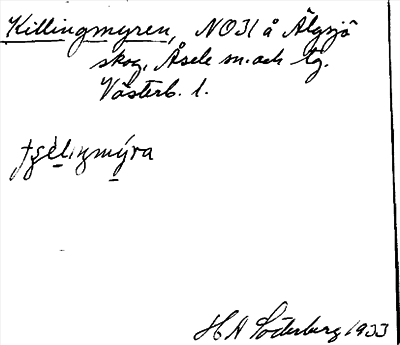 Killingmyren, NO31 å Älgsjö
skog, Åsele sn. och tg.
Västerb. l.
H A Söderberg 1933